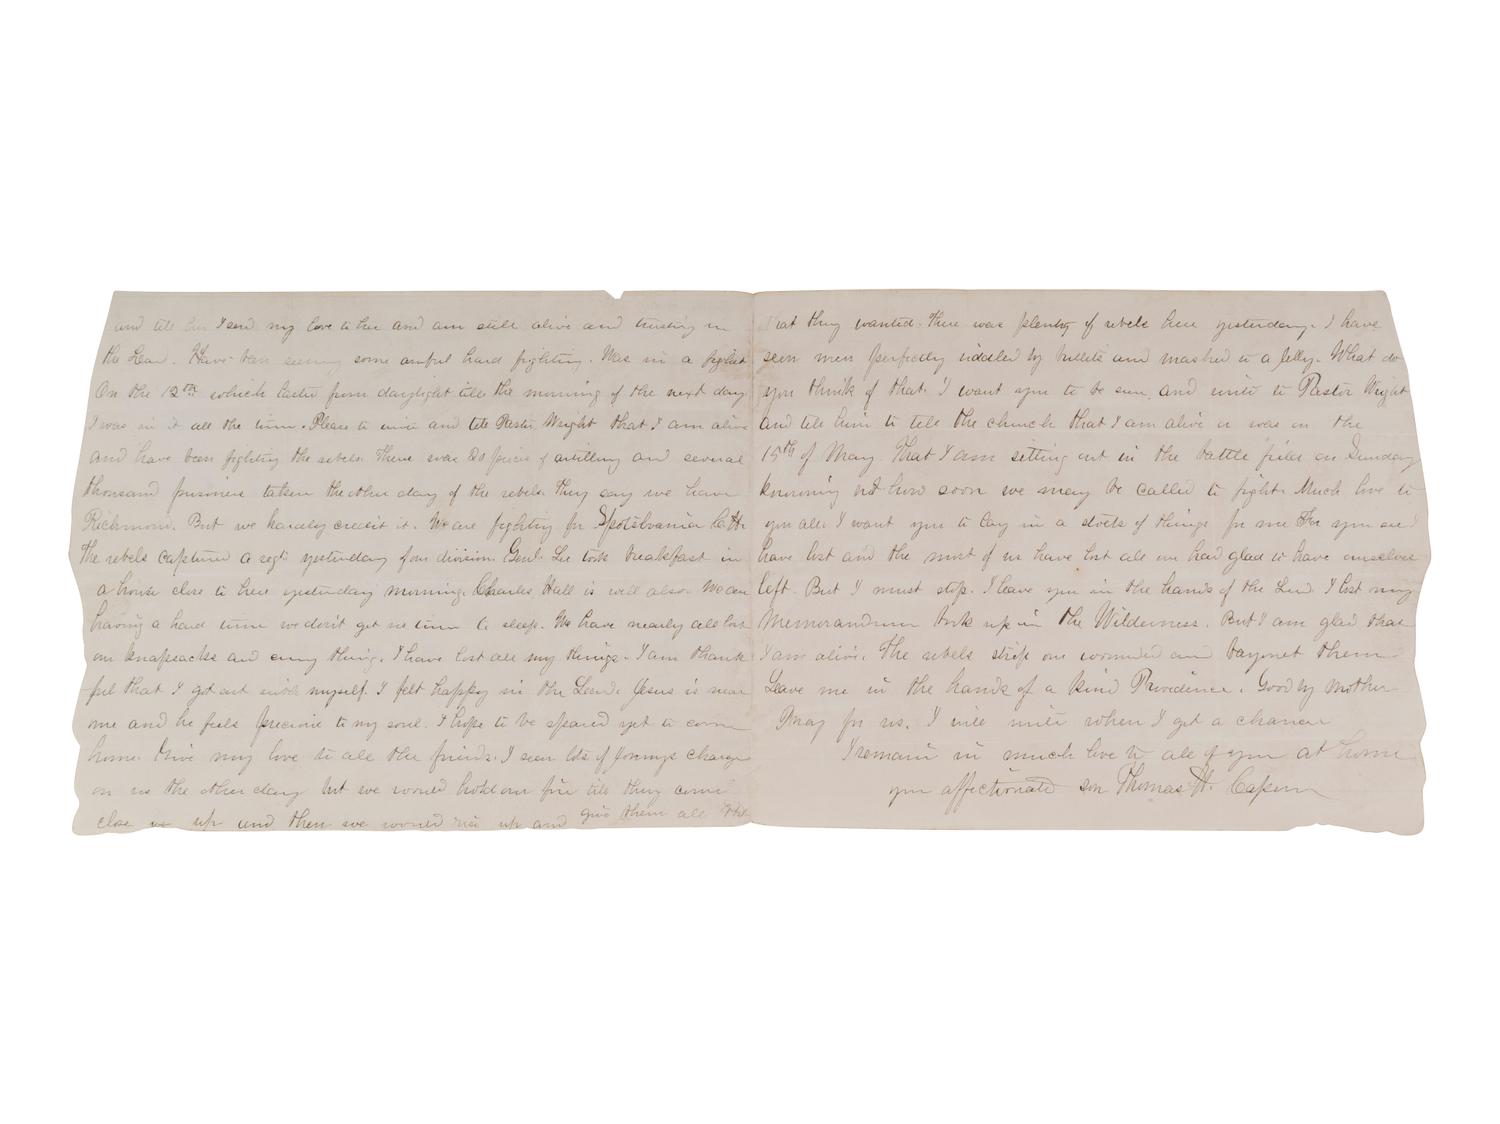 and tell her I send my love to her and am still alive and trusting in
the Lord. Have been seeing some awful hard fighting. Was in a fight
On the 12th which lasted from daylight till the morning of the next day
I was in it all the time. Please to write and tell Pastor Wright that I am alive
and have been fighting the rebels. There was 20 pieces of artillery and several
thousand prisoners taken the other day of the rebels. They say we have
Richmond. But we hardly credit it. We are fighting for Spotslvania C. H.
The rebels captured a regt yesterday of our division. Genl. Lee took breakfast in
a house close to here yesterday morning. Charles Hall is well also. We are
having a hard time we don't get no time to sleep. We have nearly all lost
our knapsacks and every thing. I have lost all my things. I am thank
ful that I got out with myself. I felt happy in the Lord. Jesus is near
me and he feels precious to my soul. I hope to be spared yet to come
home. Give my love to all the friends. I seen lots of Jonnys charge
on us the other day but we would hold our fire till they come
close us up and then we would rise up and give them all
that they wanted. There was plenty of rebels here yesterday. I have
seen men perfectly riddled by bullets and mashed to a Jelly. What do
you think of that. I want you to be sure and write to Pastor Wright
and tell him to tell the church that I am alive or was on the
15th of May. That I am sitting out in the battle field on Sunday
knowing not how soon we may be called to fight. Much love to
you all. I want you to lay in a stock of things for me For you see I
have lost and the most of us have lost all we had glad to have ourselves
left. But I must stop. I leave you in the hands of the Lord. I lost my
Memorandum book up in the Wilderness. But I am glad that
I am alive. The rebels strip our wounded and bayonet them.
Leave me in the hands of a kind Providence. Good by Mother
Pray for us. I will write when I get a chance
I remain in much love to all of you at home
your affectionate son Thomas H. Capern